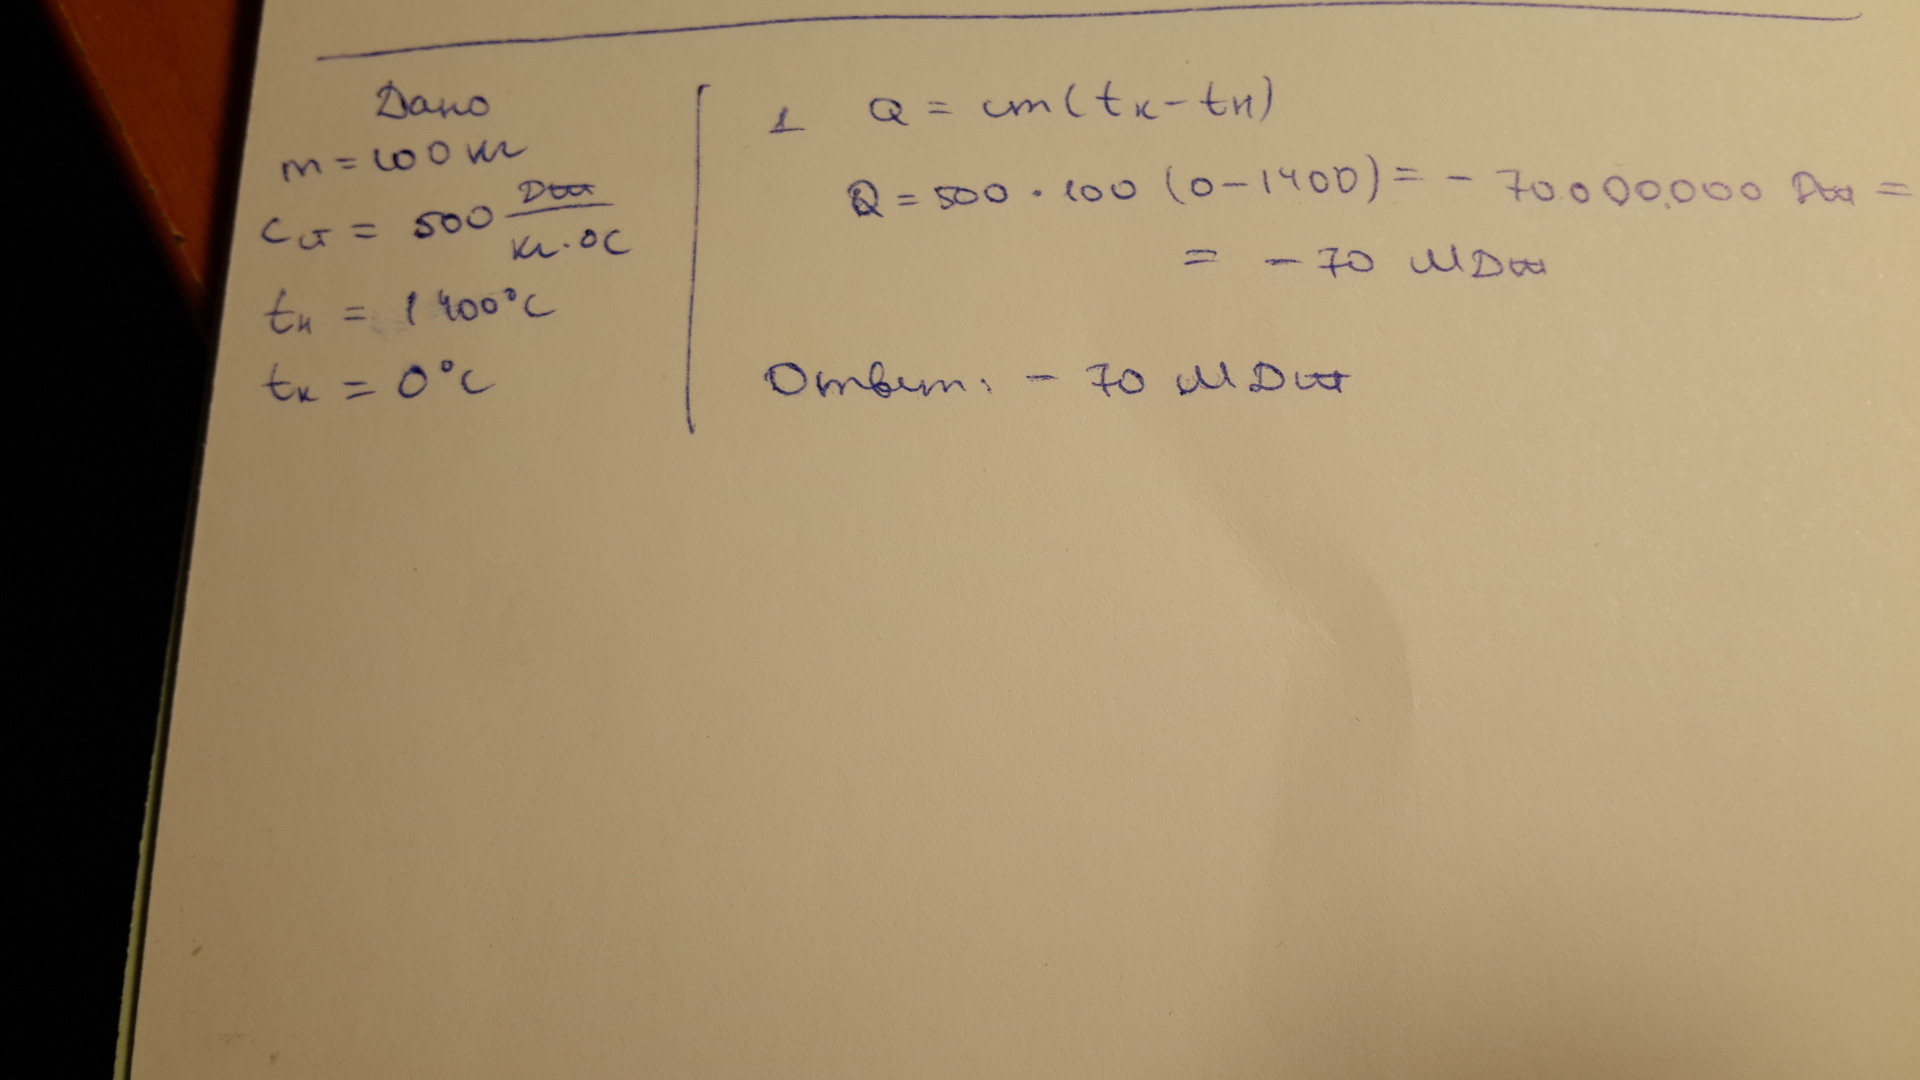 Дано
m = 100 кг
Cст = 500 Дж/кг·°C
tн = 1400°C
tк = 0°C
1 Q = cm(tк - tн)
Q = 500 · 100 (0 - 1400) = - 70.000.000 Дж =
= - 70 МДж
Ответ: - 70 МДж